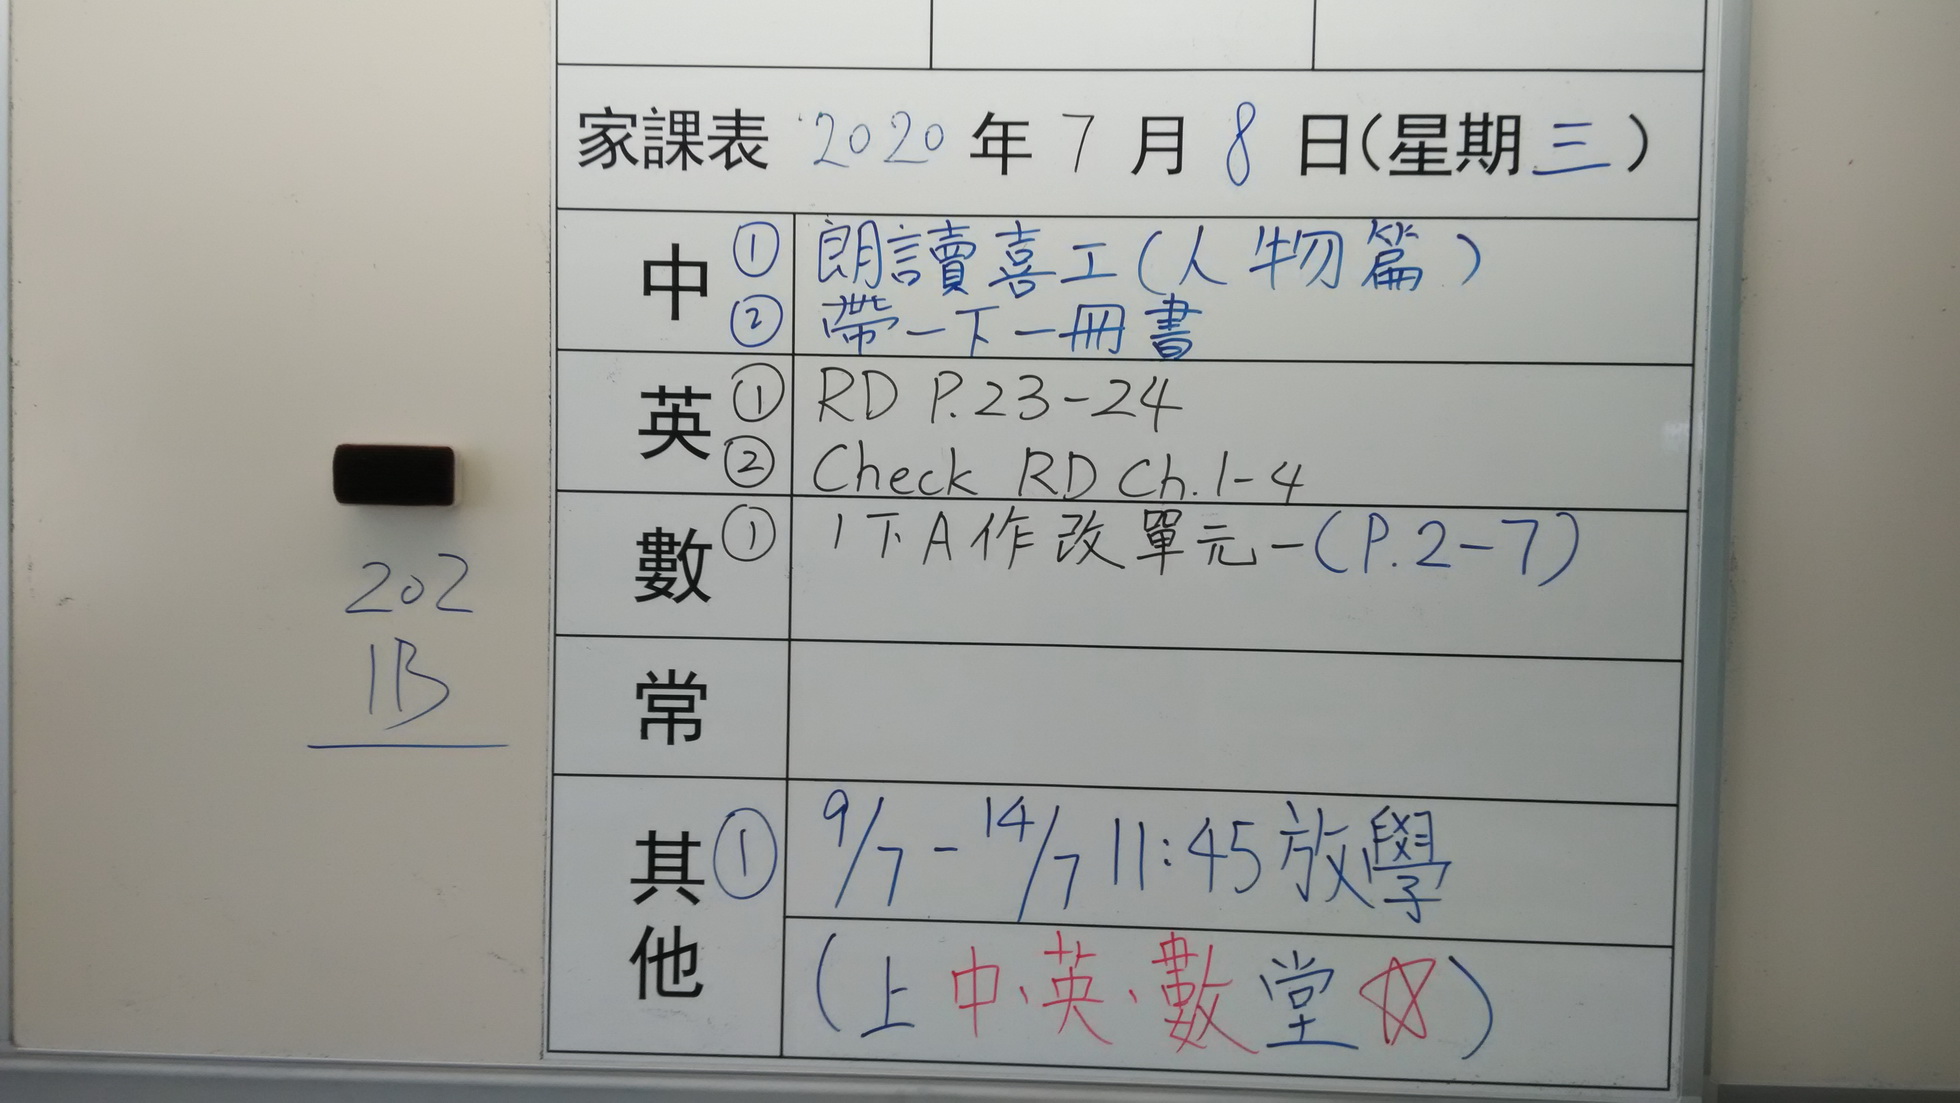 家課表 2020 年 7 月 8 日(星期三)
中 ① 朗讀喜工(人物篇)
② 帶一下一冊書
英 ① RD P.23-24
② Check RD Ch.1-4
數 ① 1下A作改單元一(P.2-7)
常
其他 ① 9/7 - 14/7 11:45 放學
(上中、英、數堂☆)
202
1B